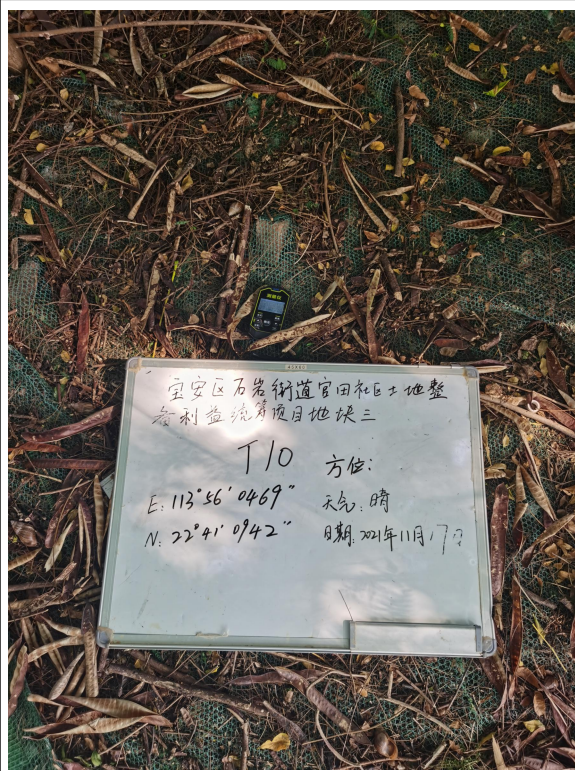 宝安区石岩街道官田社区土地整
备利益统筹项目地块三
T10
方位:
E: 113°56′0469″
天气: 晴
N: 22°41′0942″
日期: 2021年11月17日